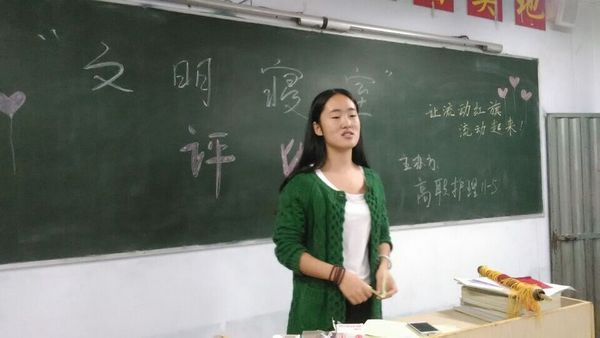 "文明寝室"
评
让流动红旗
流动起来!
主办方:
高职护理11-5
地